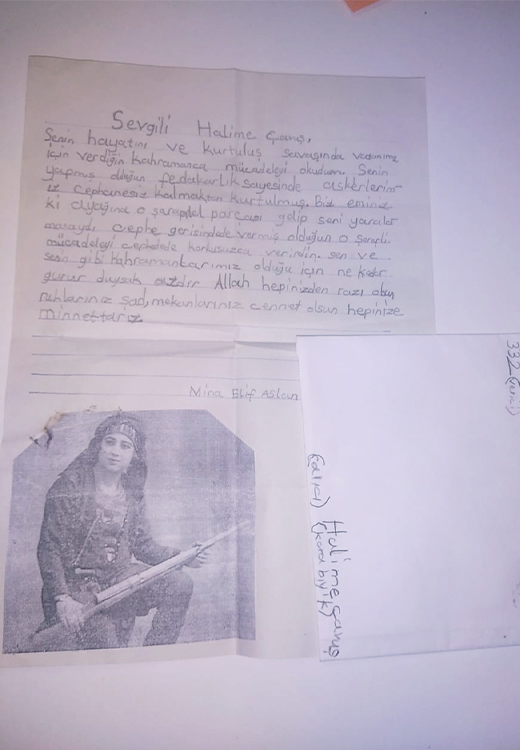 Sevgili Halime Çavuş,
Senin hayatını ve kurtuluş savaşında vatanımız
için verdiğin kahramanca mücadeleyi okudum. Senin
yapmış olduğun fedakarlık sayesinde askerlerim
iz cephanesiz kalmaktan kurtulmuş. Biz eminiz
ki ayağına o şarapnel parçası gelip seni yarala
masaydı cephe gerizindede vermiş olduğun o şanslı
mücadeleyi cephedede korkusuzca verirdin. sen ve
senin gibi kahramanlarımız olduğu için ne kadar
gurur duysak azdır. Allah hepinizden razı olsun
ruhlarınız şad, mekanlarınız cennet olsun hepinize
minnettarız
Mina Elif
332
(alıcı) Halime Çavuş
(kara bıyık)